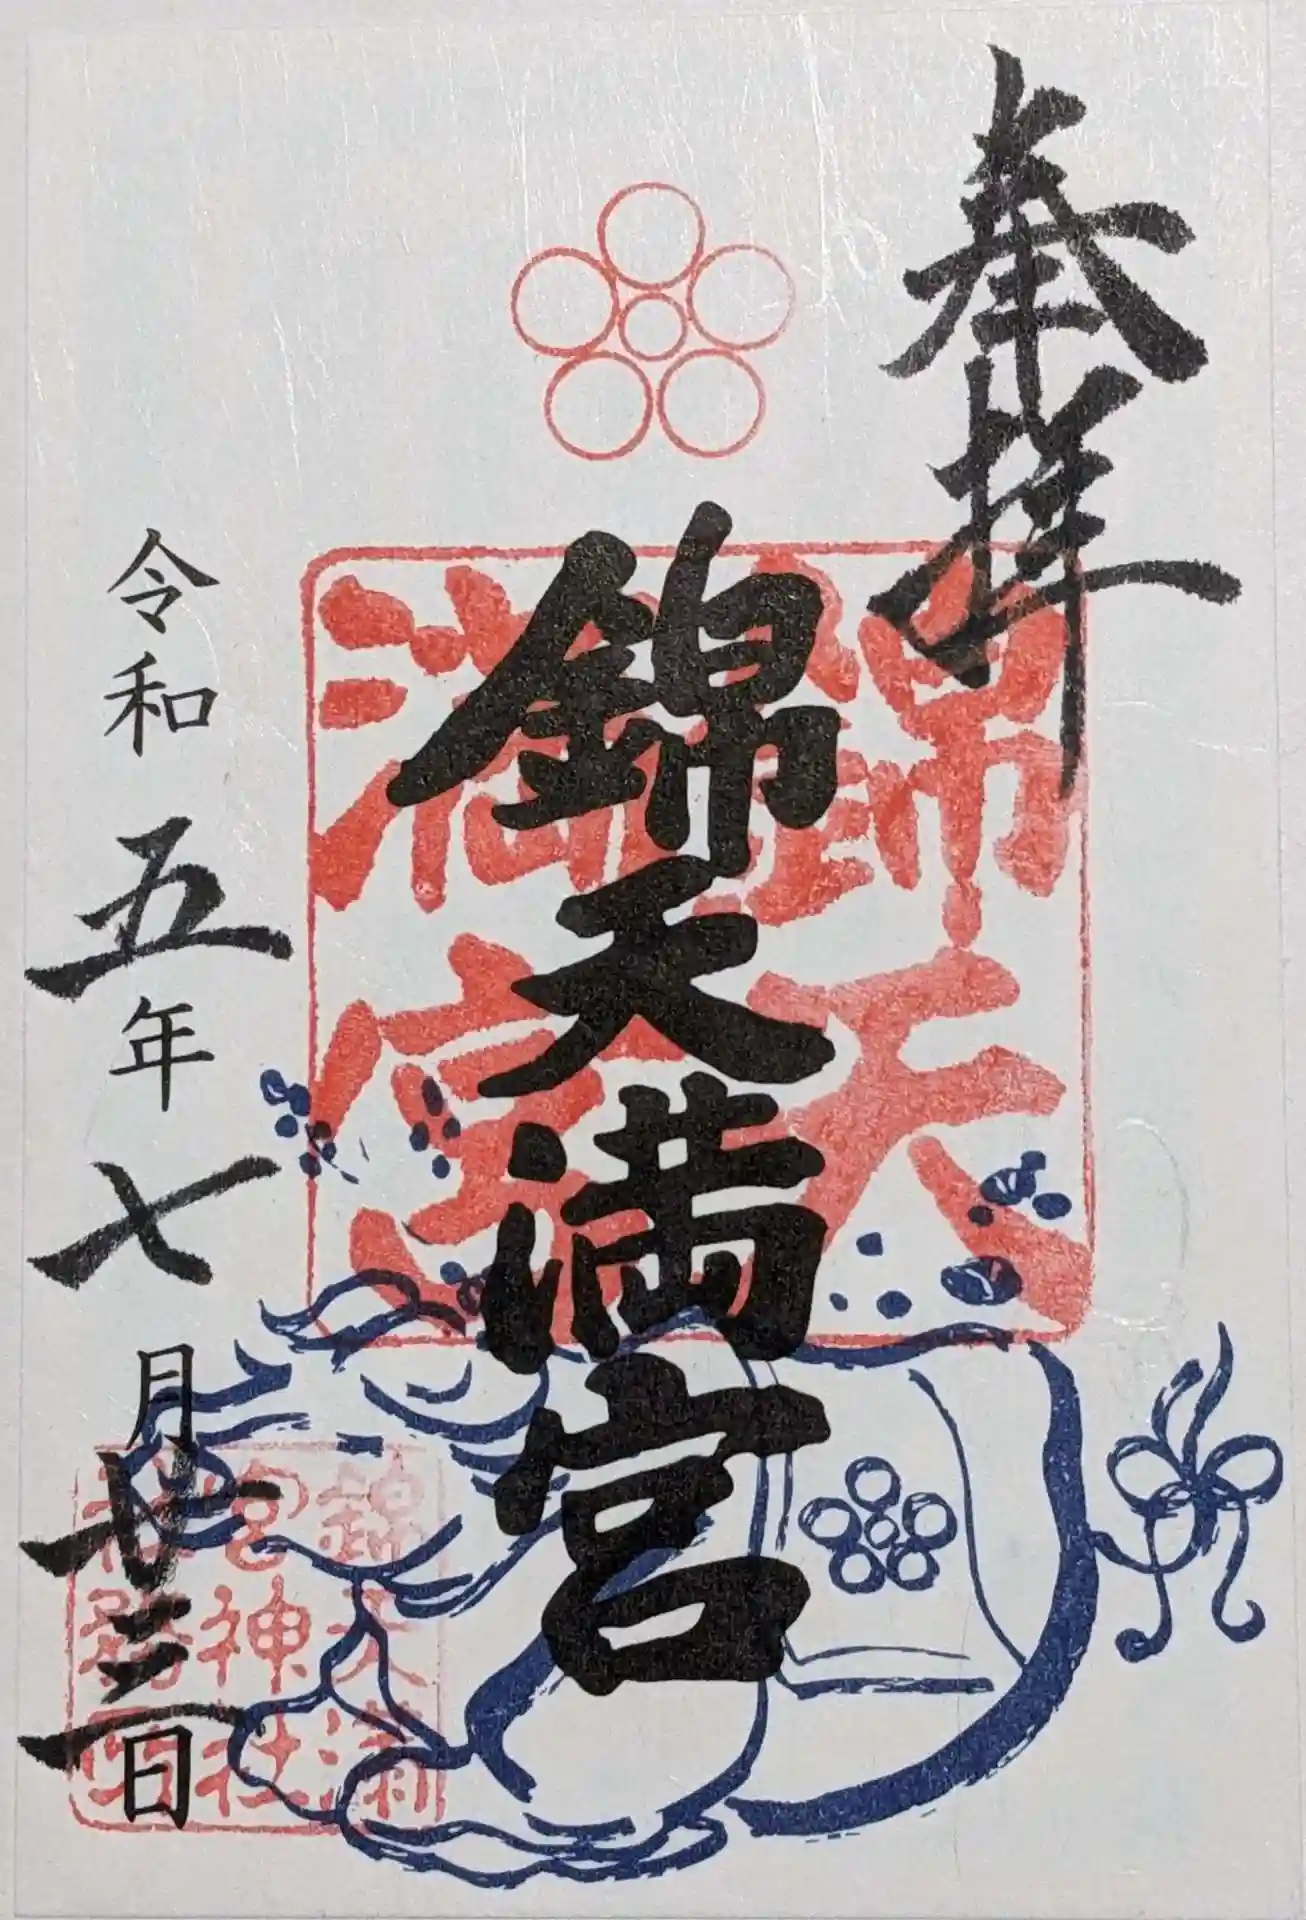 奉拝
錦天満宮
錦天
満宮
令和五年七月廿三日
錦天満
宮神社
務所